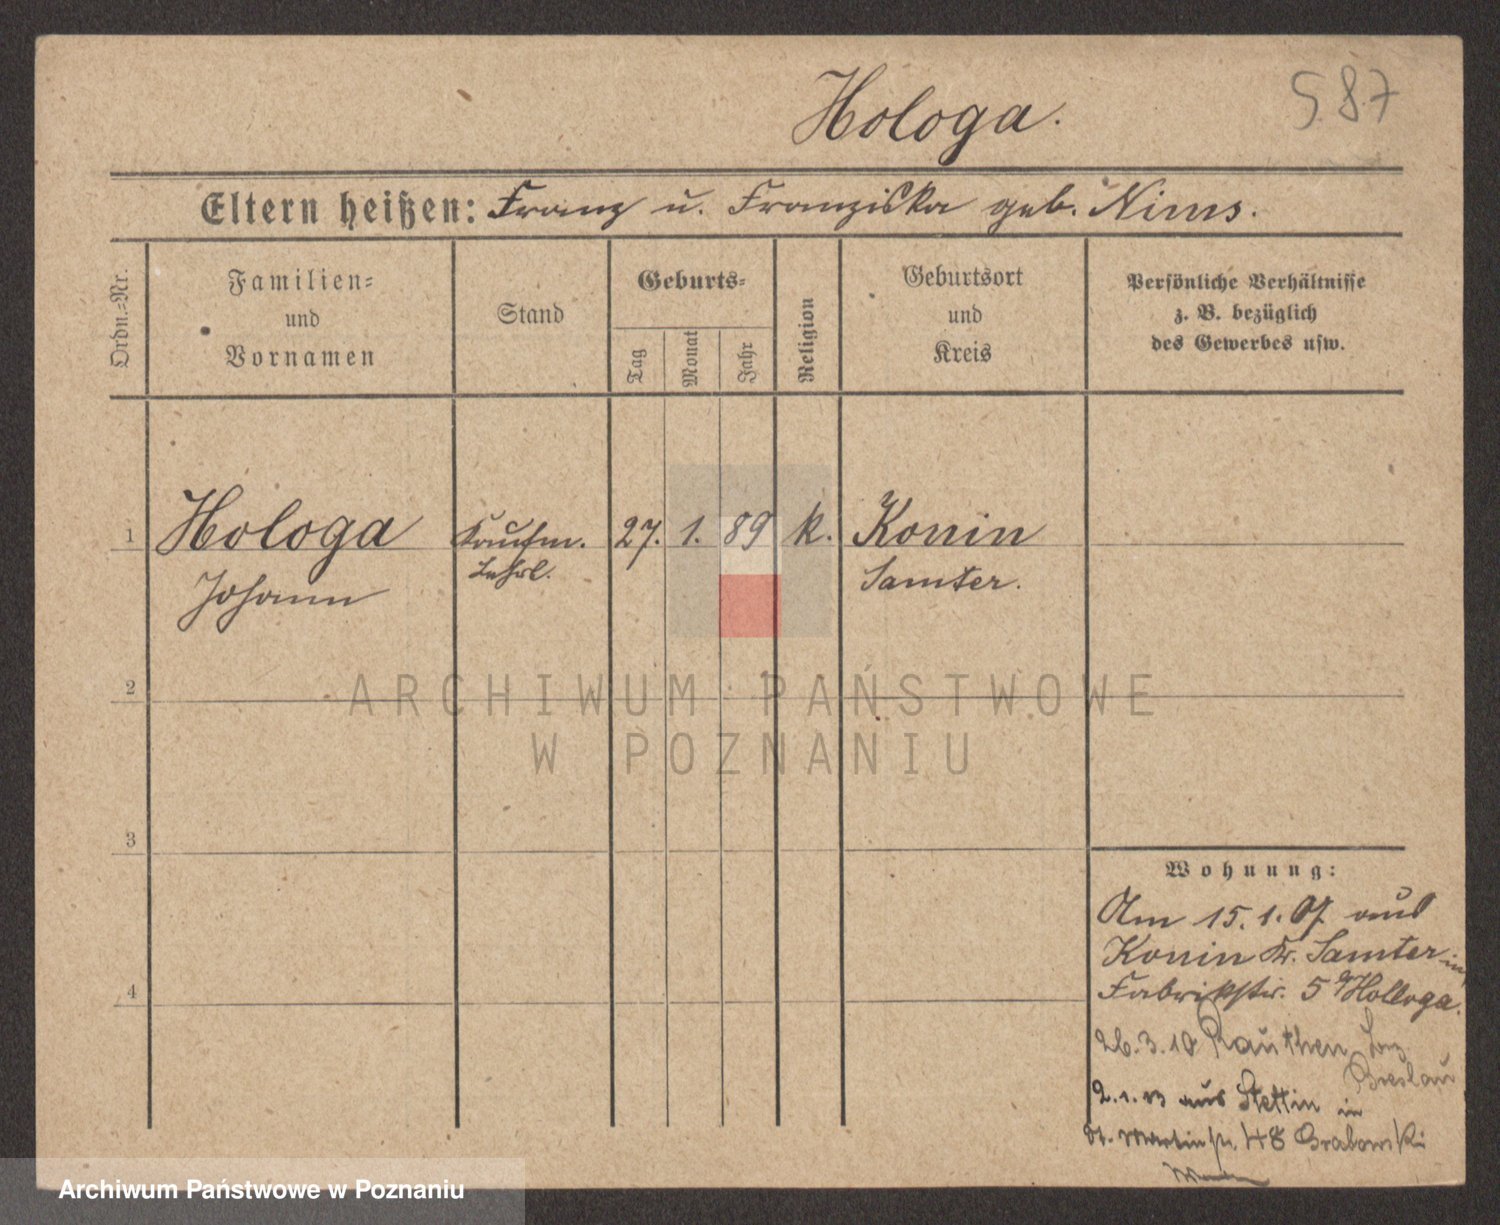 Hologa.
587
Eltern heißen: Franz u. Franziska geb. Nims.
Ordn.-Nr.
Familien-
und
Vornamen
Stand
Geburts-
Tag
Monat
Jahr
Religion
Geburtsort
und
Kreis
Persönliche Verhältnisse
z. B. bezüglich
des Gewerbes usw.
1 Hologa Kaufm. 27. 1. 89 k. Konin
Johann Lehrl. Samter.
2
ARCHIWUM PAŃSTWOWE
W POZNANIU
3
Wohnung:
Am 15.1.07 aus
Konin Kr. Samter in
4
Fabrikstr. 5 Hologa.
26.3.10 Rauthen
Breslau
2.1.13 aus Stettin in
St. Martinstr. 48 Grabowski
Archiwum Państwowe w Poznaniu